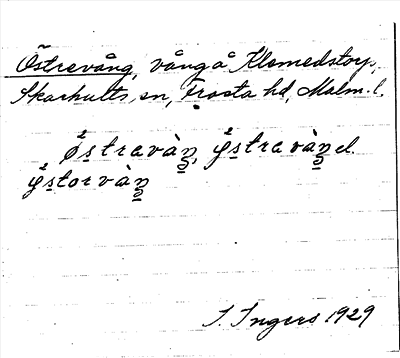 Östrevång, vång å Klemedstorp,
Skarhults sn, Frosta hd, Malm. l.
ø̂stravàŋ, ŷstravàŋ el.
ŷstorvàŋ
I. Ingers 1929